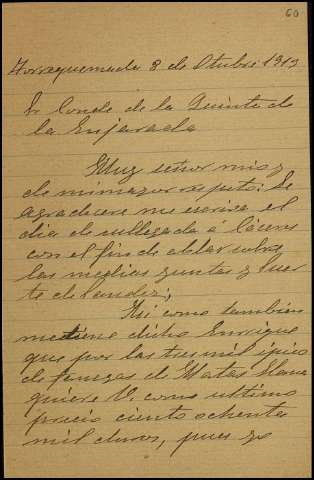 60
Torrequemada 8 de Otubre 1919
Sr Conde de la Quinta de
la Enjarada
Muy señor mio y
de mi mayor respeto: Le
agradecere me escriva el
dia de su llegada a Cáceres
con el fin de ablar sobre
las medias yuntas y suer
te de
Asi como tambien
me tiene dicho Enrique
que por las tres mil y pico
de fanegas de Matas
quiere V. como ultimo
precio ciento ochenta
mil duros, pues yo